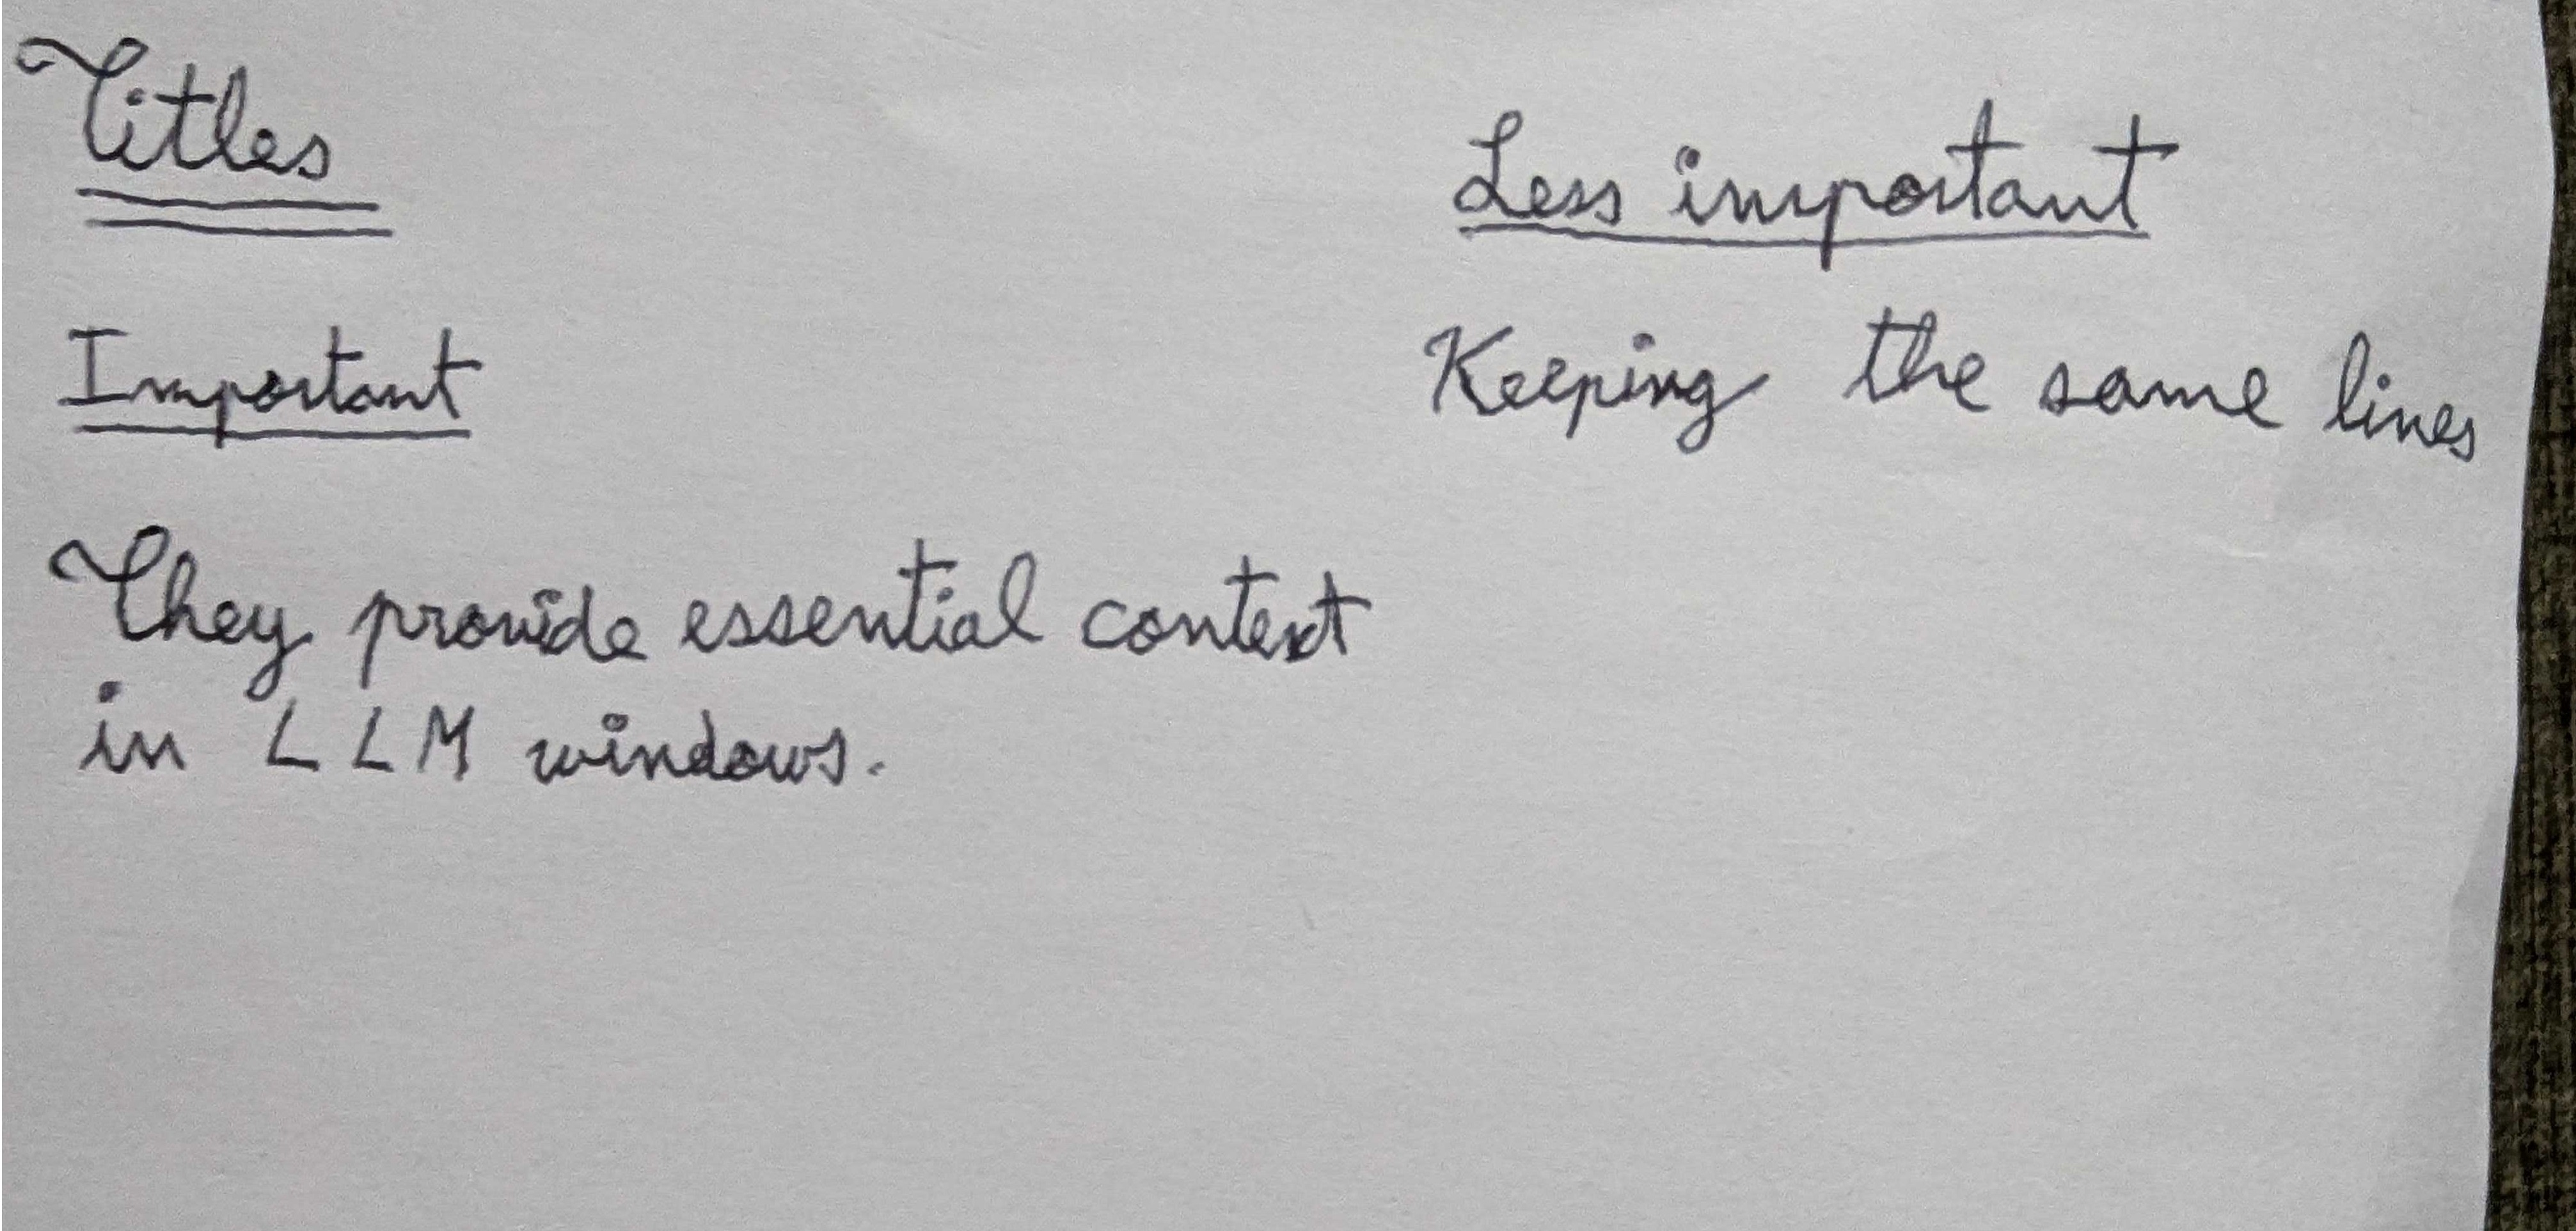 Titles
Important
They provide essential context
in LLM windows.
Less important
Keeping the same lines